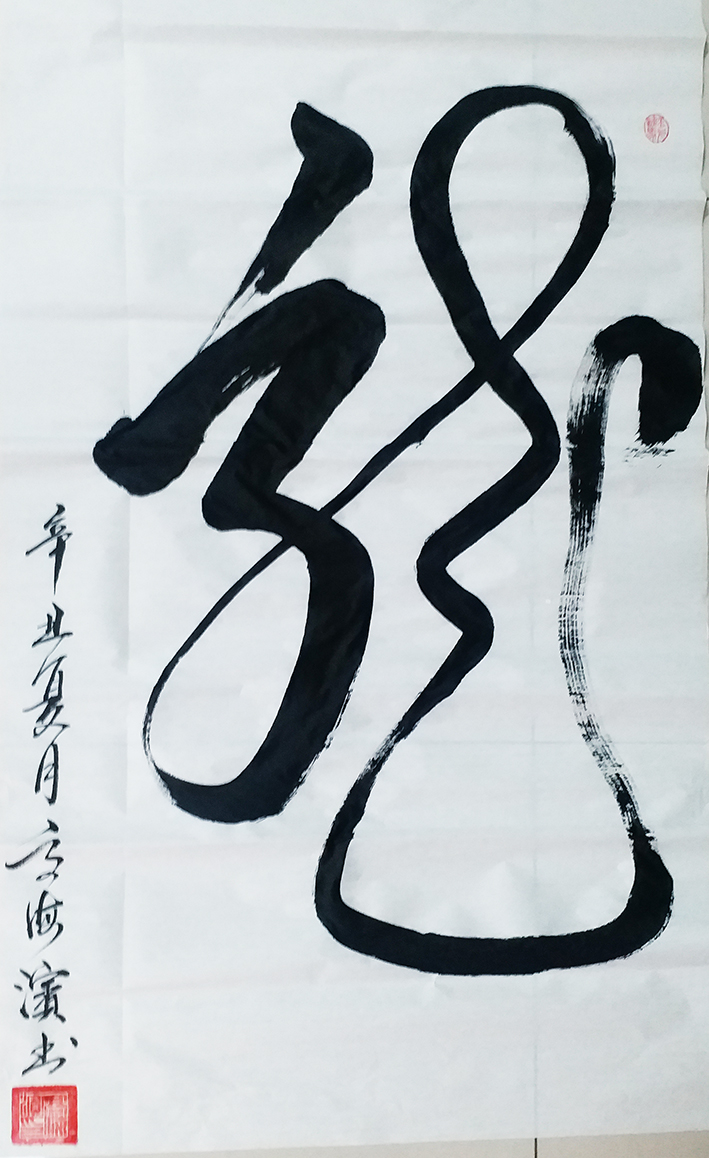 龍
辛丑夏月 海濱书